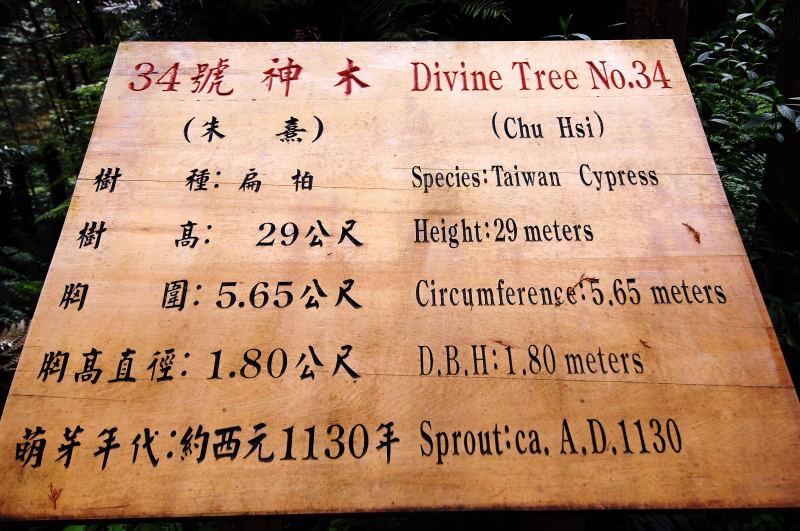 34號 神木 Divine Tree No.34
(朱 熹) (Chu Hsi)
樹 種: 扁 柏 Species:Taiwan Cypress
樹 高: 29公尺 Height:29 meters
胸 圍: 5.65公尺 Circumference:5.65 meters
胸高直徑: 1.80公尺 D.B.H:1.80 meters
萌芽年代:約西元1130年 Sprout:ca. A.D.1130